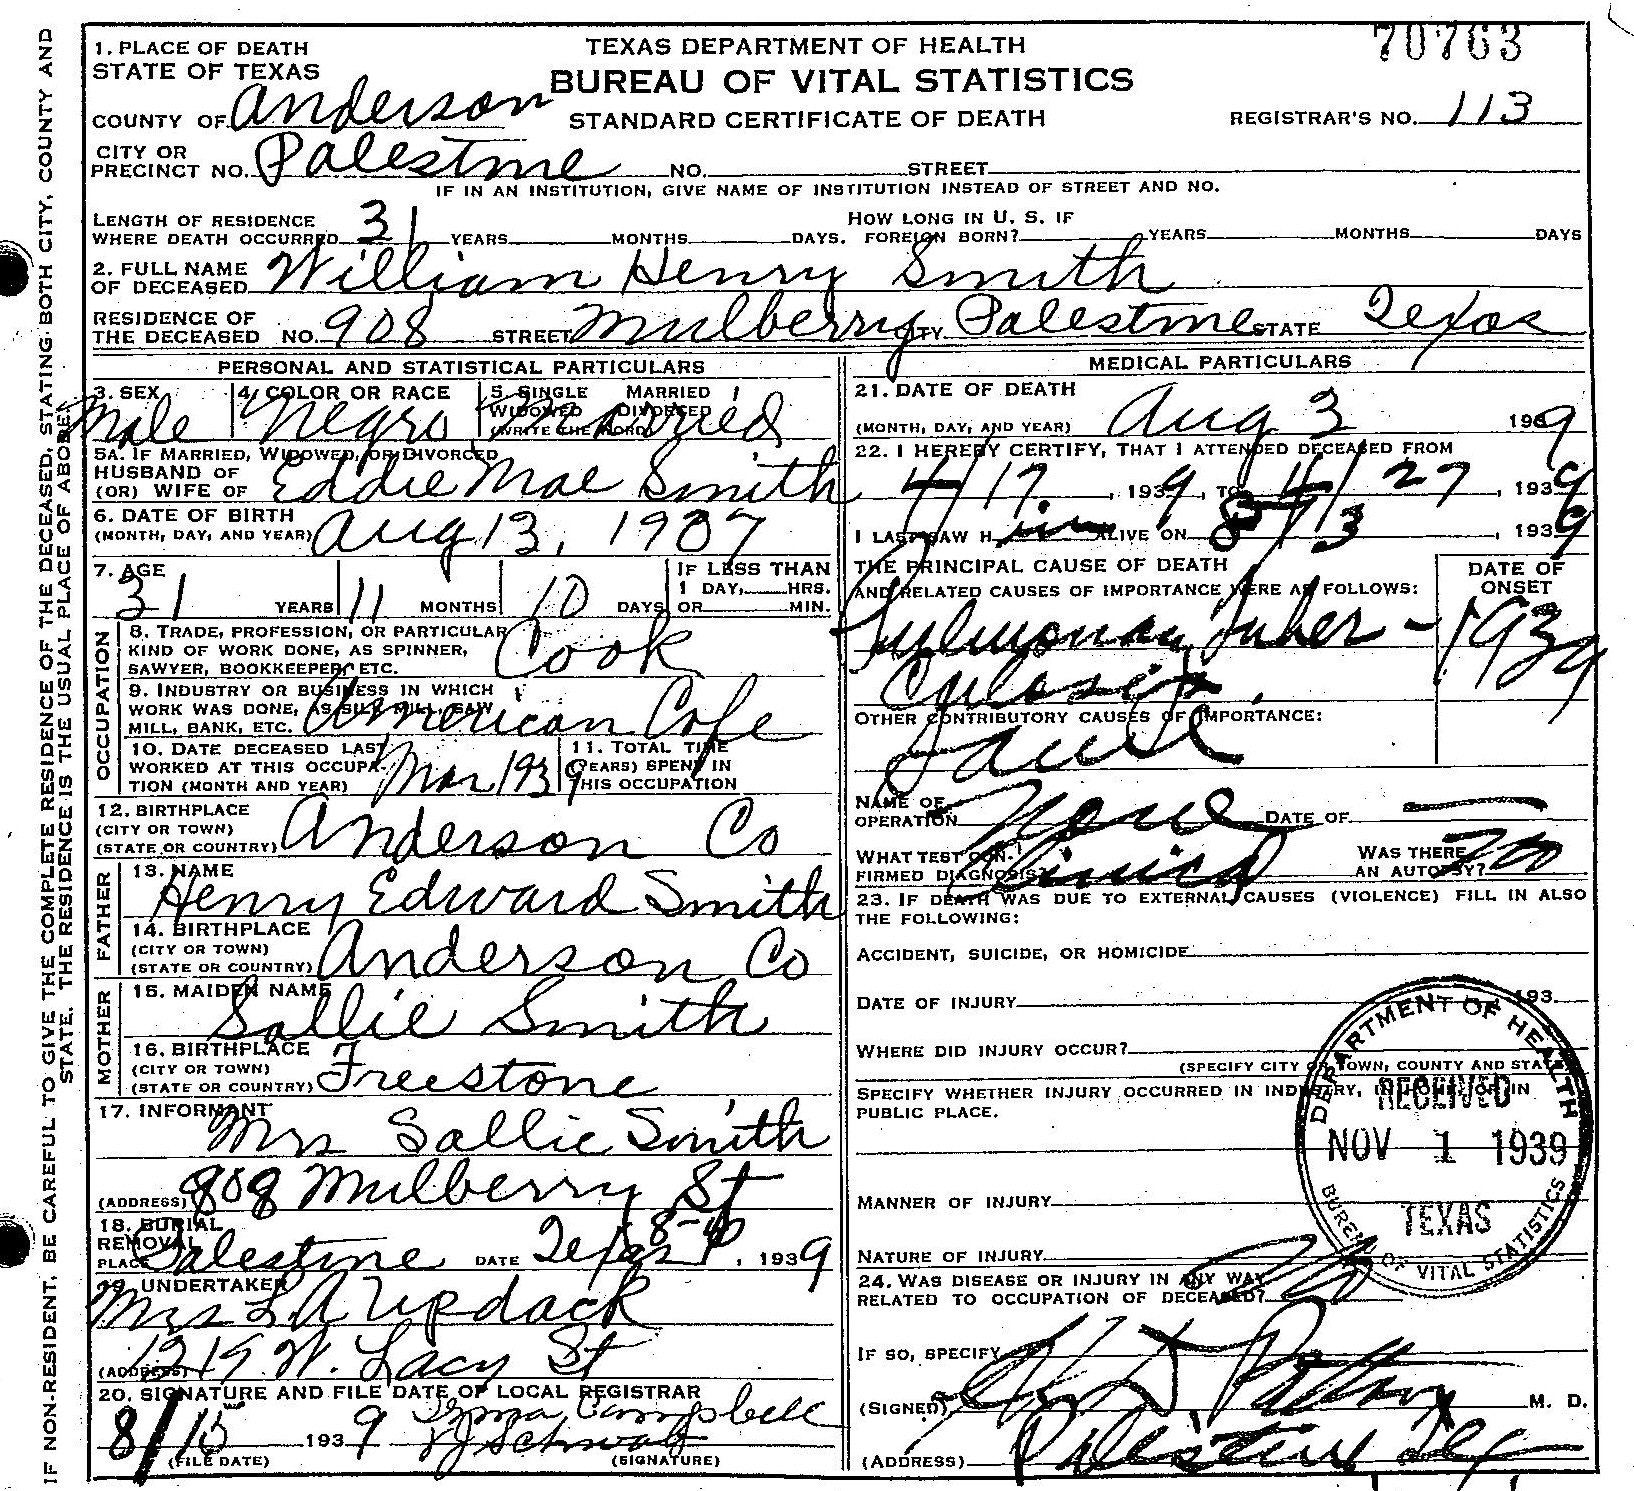 70763
1. PLACE OF DEATH
STATE OF TEXAS
TEXAS DEPARTMENT OF HEALTH
BUREAU OF VITAL STATISTICS
STANDARD CERTIFICATE OF DEATH
COUNTY OF Anderson
REGISTRAR'S NO. 113
CITY OR
PRECINCT NO. Palestine NO. STREET
IF IN AN INSTITUTION, GIVE NAME OF INSTITUTION INSTEAD OF STREET AND NO.
LENGTH OF RESIDENCE
WHERE DEATH OCCURRED 31 YEARS MONTHS DAYS.
HOW LONG IN U. S. IF
FOREIGN BORN? YEARS MONTHS DAYS
2. FULL NAME
OF DECEASED William Henry Smith
RESIDENCE OF
THE DECEASED NO. 908 STREET Mulberry CITY Palestine STATE Texas
PERSONAL AND STATISTICAL PARTICULARS
3. SEX
Male
4. COLOR OR RACE
Negro
5. SINGLE MARRIED
WIDOWED DIVORCED
(WRITE THE WORD)
Married
5A. IF MARRIED, WIDOWED, OR DIVORCED
HUSBAND OF
(OR) WIFE OF Eddie Mae Smith
6. DATE OF BIRTH
(MONTH, DAY, AND YEAR) Aug 13, 1907
7. AGE
31 YEARS 11 MONTHS 10 DAYS
IF LESS THAN
1 DAY, HRS.
OR MIN.
OCCUPATION
8. TRADE, PROFESSION, OR PARTICULAR
KIND OF WORK DONE, AS SPINNER,
SAWYER, BOOKKEEPER, ETC. Cook
9. INDUSTRY OR BUSINESS IN WHICH
WORK WAS DONE, AS SILK MILL, SAW
MILL, BANK, ETC. American Cafe
10. DATE DECEASED LAST
WORKED AT THIS OCCUPA-
TION (MONTH AND YEAR) Mar 1939
11. TOTAL TIME
(YEARS) SPENT IN
THIS OCCUPATION
12. BIRTHPLACE
(CITY OR TOWN)
(STATE OR COUNTRY) Anderson Co
FATHER
13. NAME
Henry Edward Smith
14. BIRTHPLACE
(CITY OR TOWN)
(STATE OR COUNTRY) Anderson Co
MOTHER
15. MAIDEN NAME
Sallie Smith
16. BIRTHPLACE
(CITY OR TOWN)
(STATE OR COUNTRY) Freestone
17. INFORMANT
Mrs Sallie Smith
(ADDRESS) 908 Mulberry St
18. BURIAL
REMOVAL
PLACE Palestine DATE Texas , 1939
19. UNDERTAKER
Mrs L A Updack
(ADDRESS) 1219 W. Lacy St
20. SIGNATURE AND FILE DATE OF LOCAL REGISTRAR
8/15 1939 Irma Campbell
VJ Schwab
(FILE DATE) (SIGNATURE)
MEDICAL PARTICULARS
21. DATE OF DEATH
(MONTH, DAY, AND YEAR) Aug 3 1939
22. I HEREBY CERTIFY, THAT I ATTENDED DECEASED FROM
4/17, 1939, TO 4/27, 1939
I LAST SAW H im ALIVE ON 8/3, 1939
THE PRINCIPAL CAUSE OF DEATH
AND RELATED CAUSES OF IMPORTANCE WERE AS FOLLOWS:
DATE OF
ONSET
Pulmonary Tuber-
culosis
1939
OTHER CONTRIBUTORY CAUSES OF IMPORTANCE:
NAME OF
OPERATION None DATE OF —
WHAT TEST CON-
FIRMED DIAGNOSIS? Clinical
WAS THERE
AN AUTOPSY? No
23. IF DEATH WAS DUE TO EXTERNAL CAUSES (VIOLENCE) FILL IN ALSO
THE FOLLOWING:
ACCIDENT, SUICIDE, OR HOMICIDE
DATE OF INJURY 193
WHERE DID INJURY OCCUR?
(SPECIFY CITY OR TOWN, COUNTY AND STATE)
SPECIFY WHETHER INJURY OCCURRED IN INDUSTRY, IN HOME, OR IN
PUBLIC PLACE.
MANNER OF INJURY
NATURE OF INJURY
DEPARTMENT OF HEALTH
RECEIVED
NOV 1 1939
TEXAS
BUREAU OF VITAL STATISTICS
24. WAS DISEASE OR INJURY IN ANY WAY
RELATED TO OCCUPATION OF DECEASED? No
IF SO, SPECIFY
(SIGNED) M. D.
(ADDRESS) Palestine Tex
IF NON-RESIDENT, BE CAREFUL TO GIVE THE COMPLETE RESIDENCE OF THE DECEASED, STATING BOTH CITY, COUNTY AND
STATE. THE RESIDENCE IS THE USUAL PLACE OF ABODE.